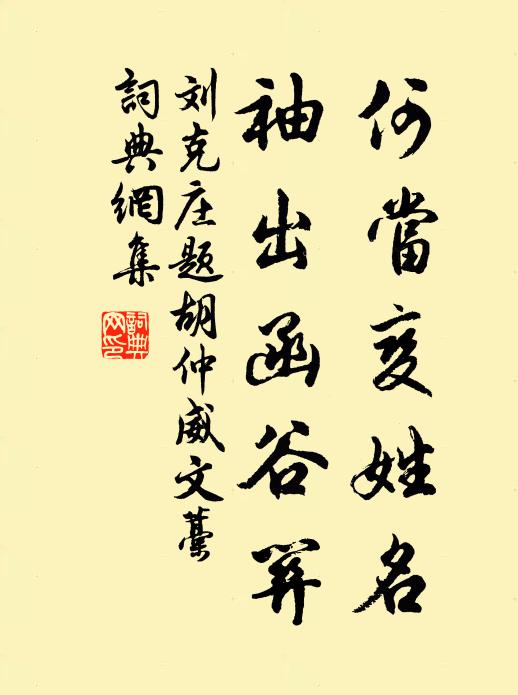 何當变姓名
袖出函谷関
刘克庄题胡仲威文藁
詞典網集
詞典網印